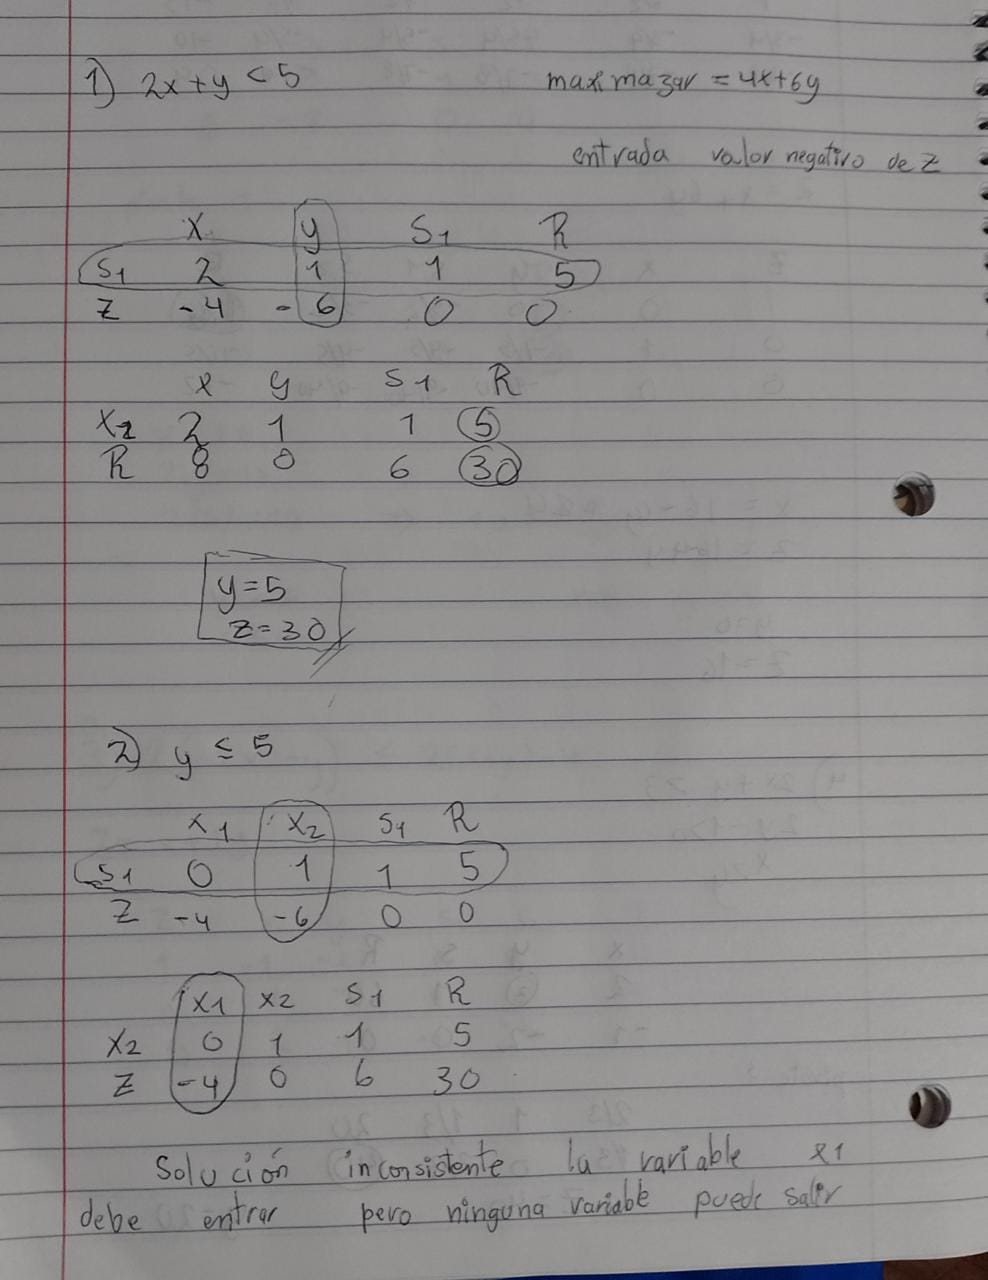 1) 2x+y<5 maximazar = 4x+6y
entrada valor negativo de z
x y S1 R
S1 2 1 1 5
Z -4 -6 0 0
x y S1 R
X2 2 1 1 5
R 8 0 6 30
y=5
z=30
2) y ≤ 5
X1 X2 S1 R
S1 0 1 1 5
Z -4 -6 0 0
X1 X2 S1 R
X2 0 1 1 5
Z -4 0 6 30
Solución inconsistente la variable x1
debe entrar pero ninguna variable puede salir